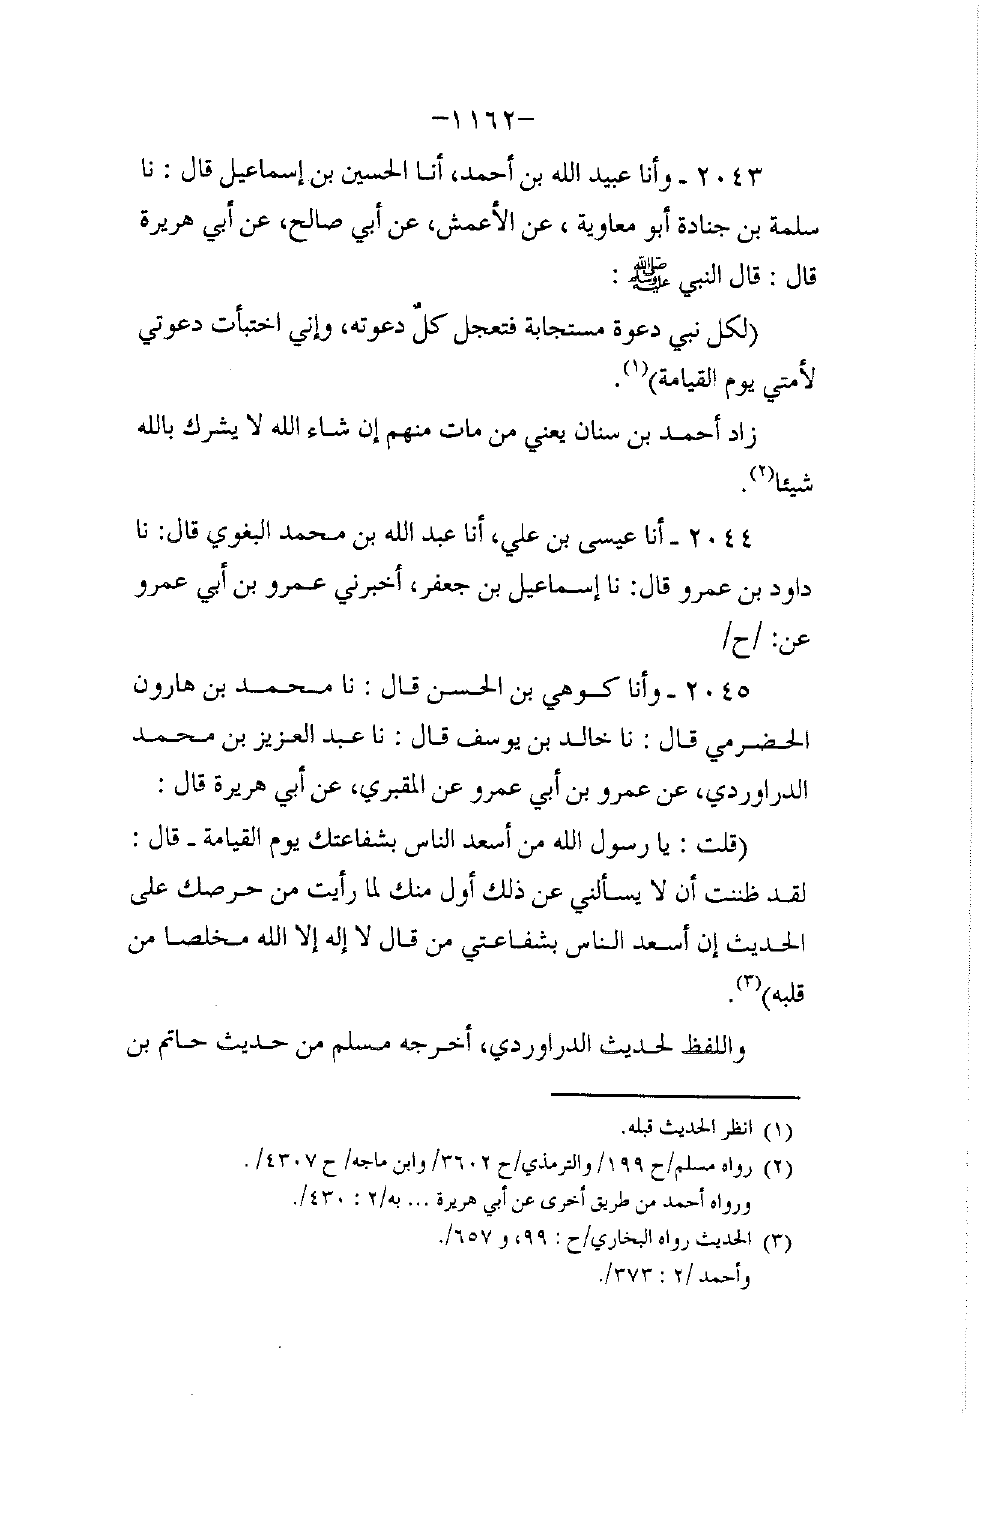 -١١٦٢-
٢٠٤٣ ـ وأنا عبيد الله بن أحمد، أنا الحسين بن إسماعيل قال : نا
سلمة بن جنادة أبو معاوية ، عن الأعمش، عن أبي صالح، عن أبي هريرة
قال : قال النبي ﷺ :
(لكل نبي دعوة مستجابة فتعجل كلٌ دعوته، وإني اختبأت دعوتي
لأمتي يوم القيامة)(١).
زاد أحمد بن سنان يعني من مات منهم إن شاء الله لا يشرك بالله
شيئا(٢).
٢٠٤٤ ـ أنا عيسى بن علي، أنا عبد الله بن محمد البغوي قال: نا
داود بن عمرو قال: نا إسماعيل بن جعفر، أخبرني عمرو بن أبي عمرو
عن: /ح/
٢٠٤٥ ـ وأنا كوهي بن الحسن قال : نا محمد بن هارون
الحضرمي قال : نا خالد بن يوسف قال : نا عبد العزيز بن محمد
الدراوردي، عن عمرو بن أبي عمرو عن المقبري، عن أبي هريرة قال :
(قلت : يا رسول الله من أسعد الناس بشفاعتك يوم القيامة ـ قال :
لقد ظننت أن لا يسألني عن ذلك أول منك لما رأيت من حرصك على
الحديث إن أسعد الناس بشفاعتي من قال لا إله إلا الله مخلصا من
قلبه)(٣).
واللفظ لحديث الدراوردي، أخرجه مسلم من حديث حاتم بن
(١) انظر الحديث قبله.
(٢) رواه مسلم/ح ١٩٩/ والترمذي/ح ٣٦٠٢/ وابن ماجه/ ح ٤٣٠٧/.
ورواه أحمد من طريق أخرى عن أبي هريرة ... به/٢ : ٤٣٠/.
(٣) الحديث رواه البخاري/ح : ٩٩، و ٦٥٧/.
وأحمد /٢ : ٣٧٣/.